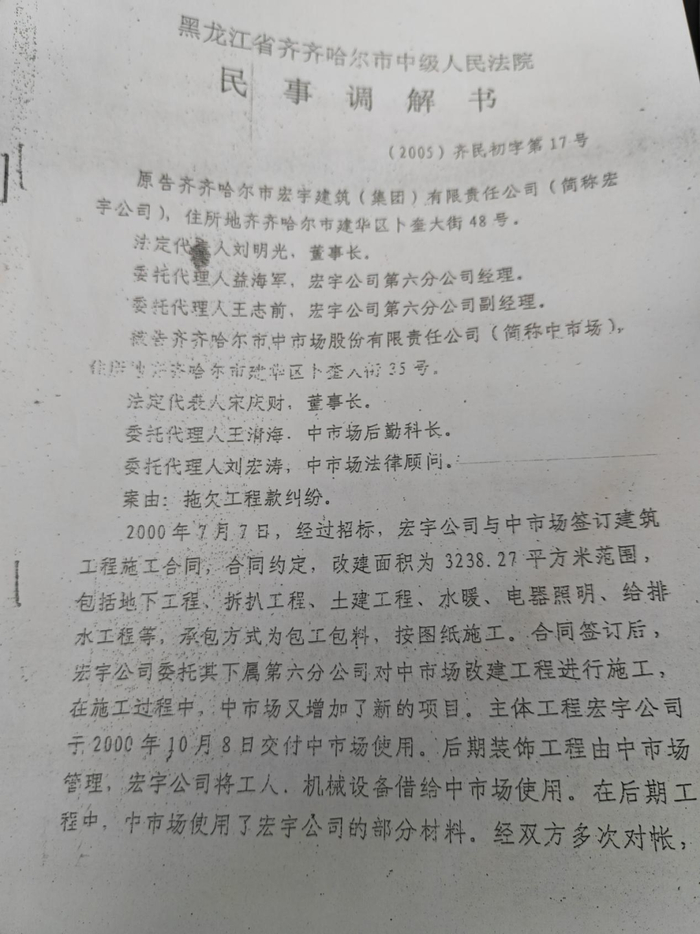 黑龙江省齐齐哈尔市中级人民法院
民事调解书
(2005)齐民初字第17号
原告齐齐哈尔市宏宇建筑(集团)有限责任公司(简称宏
宇公司),住所地齐齐哈尔市建华区卜奎大街48号。
法定代表人刘明光,董事长。
委托代理人益海军,宏宇公司第六分公司经理。
委托代理人王志前,宏宇公司第六分公司副经理。
被告齐齐哈尔市中市场股份有限责任公司(简称中市场),
住所地齐齐哈尔市建华区卜奎大街35号。
法定代表人宋庆财,董事长。
委托代理人王清海,中市场后勤科长。
委托代理人刘宏涛,中市场法律顾问。
案由:拖欠工程款纠纷。
2000年7月7日,经过招标,宏宇公司与中市场签订建筑
工程施工合同,合同约定,改建面积为3238.27平方米范围,
包括地下工程、拆扒工程、土建工程、水暖、电器照明、给排
水工程等,承包方式为包工包料,按图纸施工。合同签订后,
宏宇公司委托其下属第六分公司对中市场改建工程进行施工,
在施工过程中,中市场又增加了新的项目。主体工程宏宇公司
于2000年10月8日交付中市场使用。后期装饰工程由中市场
管理,宏宇公司将工人、机械设备借给中市场使用。在后期工
程中,中市场使用了宏宇公司的部分材料。经双方多次对帐,